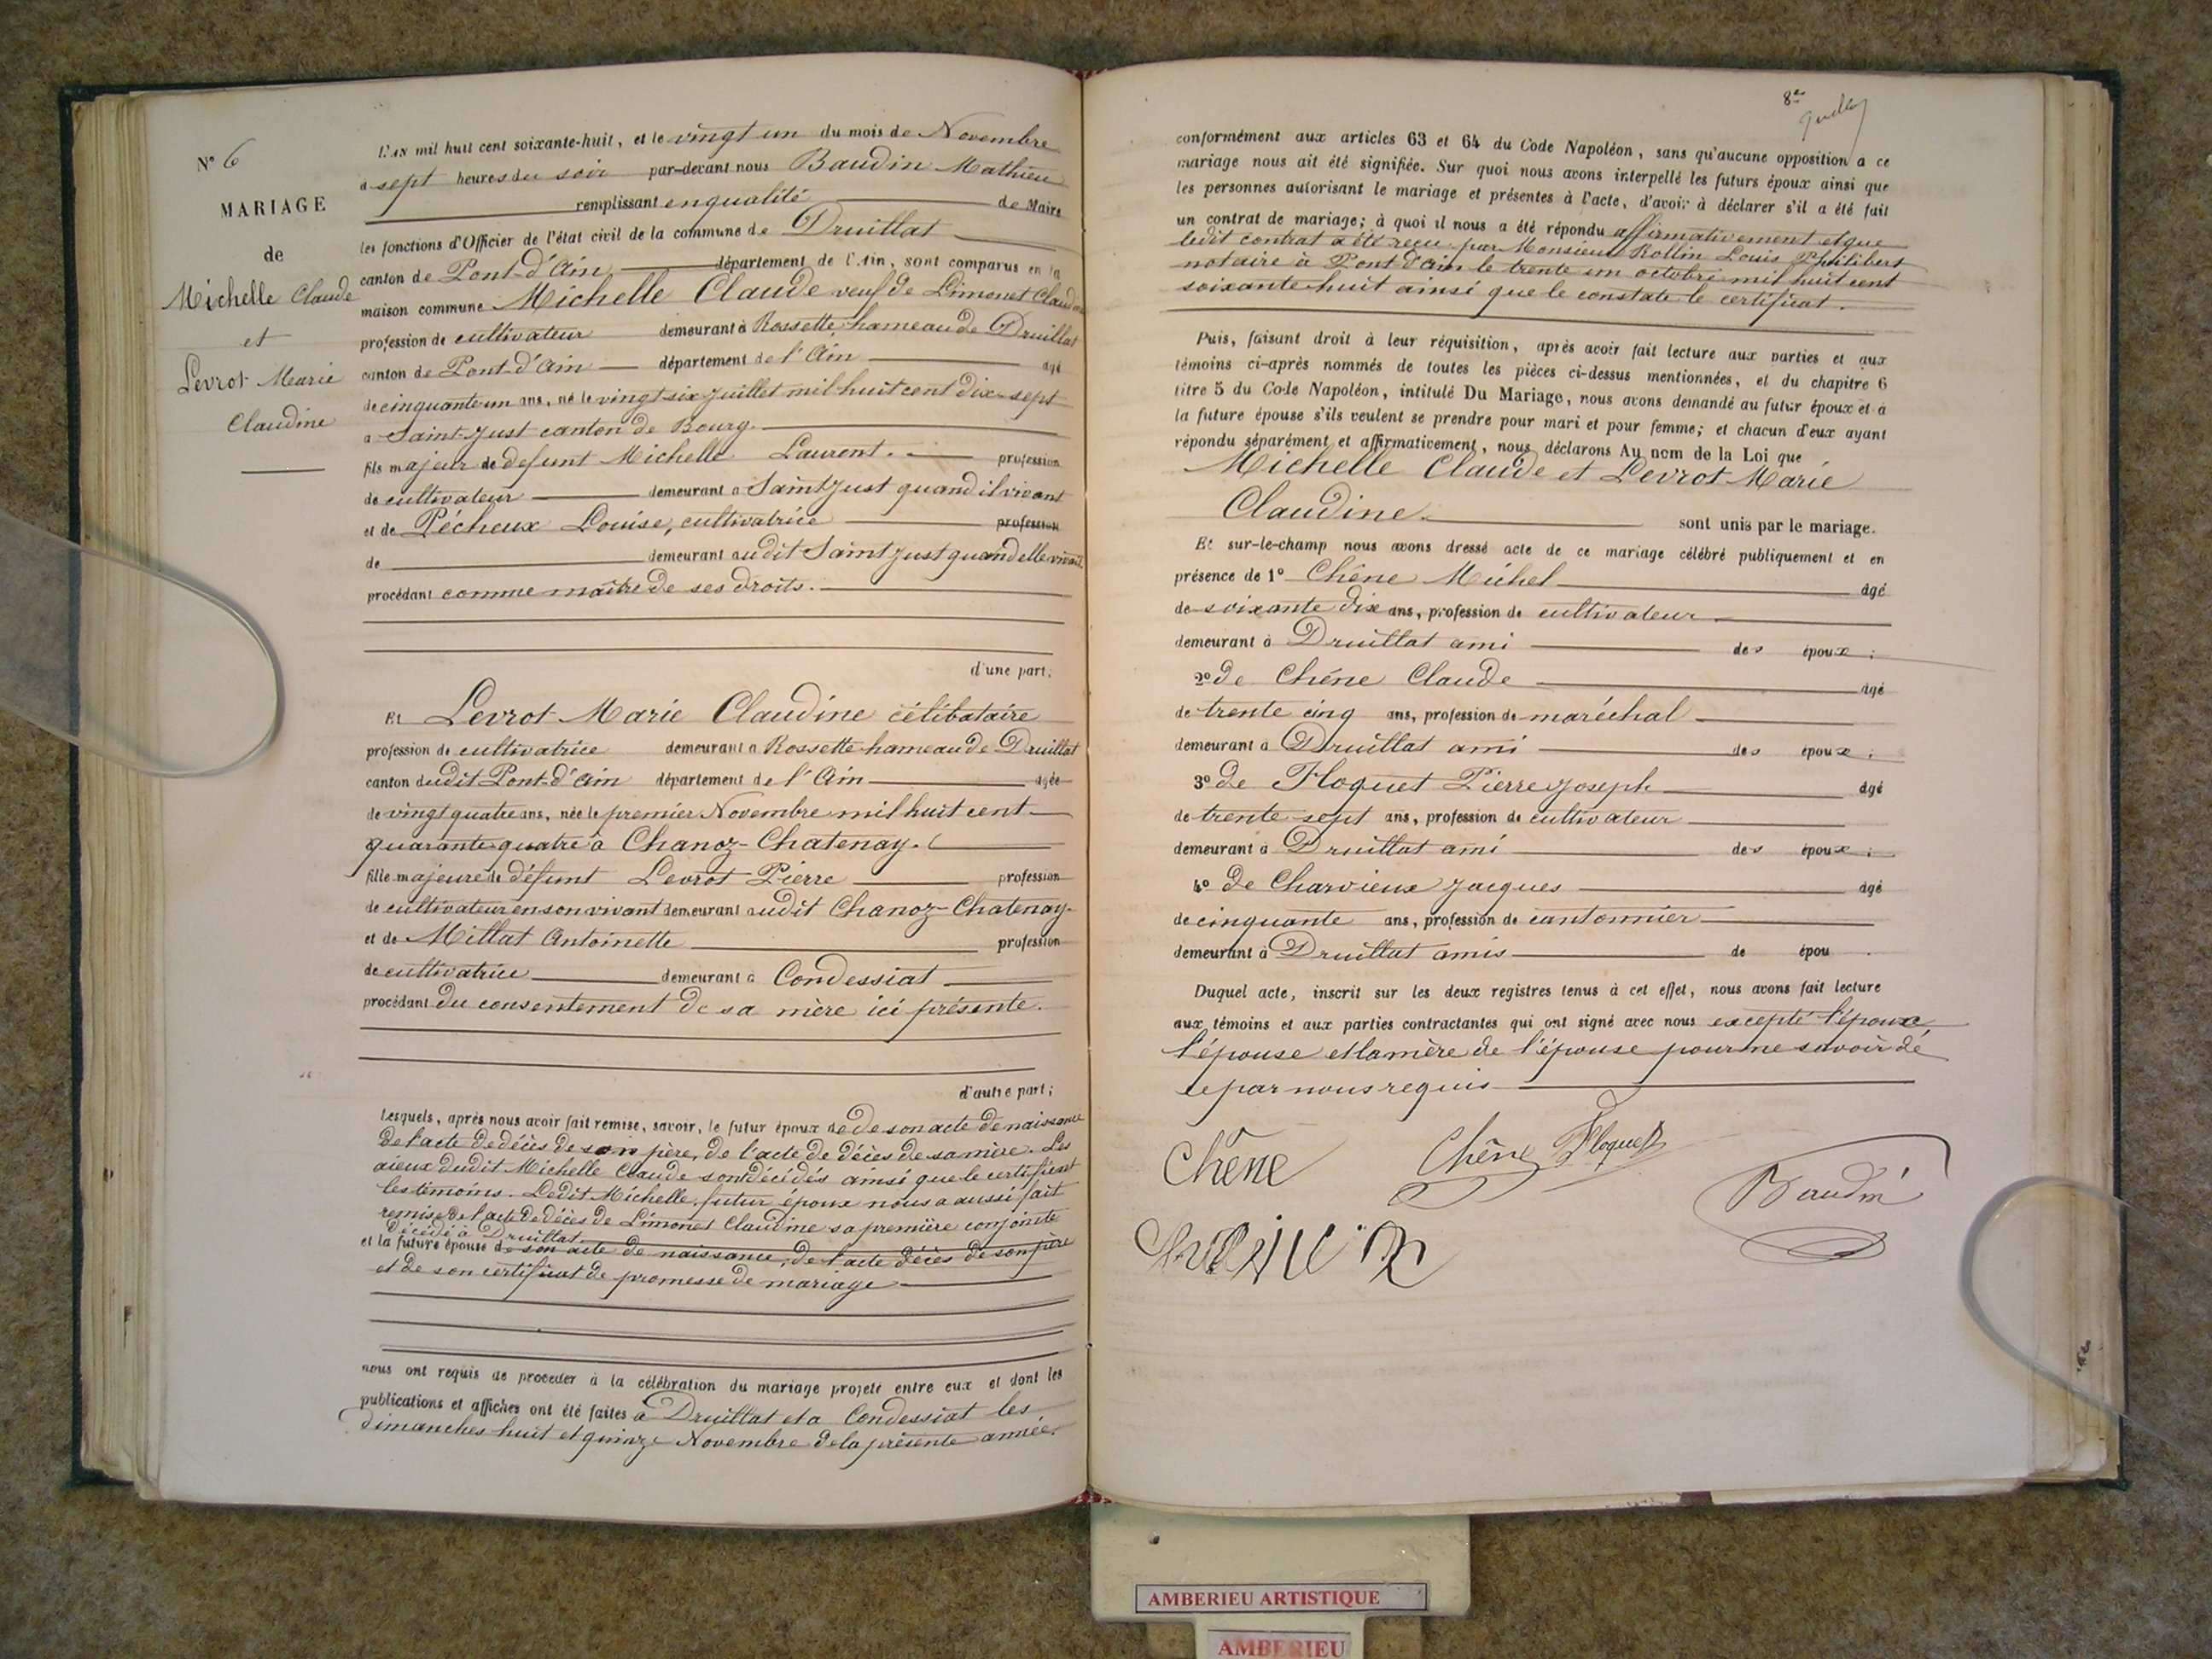 N° 6
MARIAGE
de
Michelle Claude
et
Levrot Marie
Claudine
L'an mil huit cent soixante-huit, et le vingt un du mois de Novembre
a sept heures du soir par-devant nous Baudin Mathieu
remplissant en qualité de Maire
les fonctions d'Officier de l'état civil de la commune de Druillat
canton de Pont-d'Ain, département de l'Ain, sont comparus en la
maison commune Michelle Claude veuf de Limonet Claudine
profession de cultivateur demeurant à Rossette, hameau de Druillat
canton de Pont-d'Ain département de l'Ain agé
de cinquante un ans, né le vingt six juillet mil huit cent dix-sept
a Saint-Just canton de Bourg.
fils majeur de défunt Michelle Laurent. profession
de cultivateur demeurant a Saint Just quand il vivant
et de Pécheux Louise, cultivatrice profession
de demeurant audit Saint Just quand elle vivait
procédant comme maître de ses droits.
d'une part;
Et Levrot Marie Claudine célibataire
profession de cultivatrice demeurant a Rossette hameau de Druillat
canton dudit Pont-d'Ain département de l'Ain agée
de vingt quatre ans, née le premier Novembre mil huit cent
quarante quatre à Chanoz-Chatenay.
fille majeure de défunt Levrot Pierre profession
de cultivateur en son vivant demeurant audit Chanoz-Chatenay
et de Millat Antoinette profession
de cultivatrice demeurant à Condessiat
procédant du consentement de sa mère ici présente.
d'autre part;
Lesquels, après nous avoir fait remise, savoir, le futur époux de de son acte de naissance
de l'acte de décès de son père, de l'acte de décès de sa mère. Les
aieux dudit Michelle Claude sont décédés ainsi que le certifient
les témoins. Ledit Michelle, futur époux nous a aussi fait
remise de l'acte de décès de Limonet Claudine sa première conjointe
décédé à Druillat
et la future épouse de son acte de naissance, de l'acte décès de son père
et de son certificat de promesse de mariage
nous ont requis de proceder à la célébration du mariage projeté entre eux et dont les
publications et affiches ont été faites à Druillat et a Condessiat les
dimanches huit et quinze Novembre de la présente année.
8e
conformément aux articles 63 et 64 du Code Napoléon, sans qu'aucune opposition a ce
mariage nous ait été signifiée. Sur quoi nous avons interpellé les futurs époux ainsi que
les personnes autorisant le mariage et présentes à l'acte, d'avoir à déclarer s'il a été fait
un contrat de mariage; à quoi il nous a été répondu affirmativement et que
ledit contrat a été reçu par Monsieur Rollin Louis Philibert
notaire à Pont d'Ain le trente un octobre mil huit cent
soixante-huit ainsi que le constate le certificat.
Puis, faisant droit à leur réquisition, après avoir fait lecture aux parties et aux
témoins ci-après nommés de toutes les pièces ci-dessus mentionnées, et du chapitre 6
titre 5 du Code Napoléon, intitulé Du Mariage, nous avons demandé au futur époux et à
la future épouse s'ils veulent se prendre pour mari et pour femme; et chacun d'eux ayant
répondu séparément et affirmativement, nous déclarons Au nom de la Loi que
Michelle Claude et Levrot Marie
Claudine. sont unis par le mariage.
Et sur-le-champ nous avons dressé acte de ce mariage célébré publiquement et en
présence de 1° Chêne Michel agé
de soixante dix ans, profession de cultivateur
demeurant à Druillat ami des époux;
2° de Chêne Claude agé
de trente cinq ans, profession de maréchal
demeurant à Druillat ami des époux;
3° de Floquet Pierre Joseph agé
de trente sept ans, profession de cultivateur
demeurant à Druillat ami des époux;
4° de Charvieux Jacques agé
de cinquante ans, profession de cantonnier
demeurant à Druillat amis de épou .
Duquel acte, inscrit sur les deux registres tenus à cet effet, nous avons fait lecture
aux témoins et aux parties contractantes qui ont signé avec nous excepté l'époux,
l'épouse et la mère de l'épouse pour ne savoir de
ce par nous requis
Chêne Chêne Floquet
Baudin
AMBERIEU ARTISTIQUE
AMBERIEU